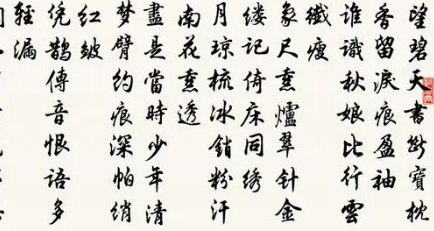 望碧天書斷寶枕
香留淚痕盈袖
誰識秋娘比行雲
纖瘦
象尺熏爐翠針金
縷記倚床同绣
月琼梳冰銷粉汗
南花熏透
盡是當時少年清
梦臂约痕深帕绡
红皱
凭鹊傳音恨語多
輕漏